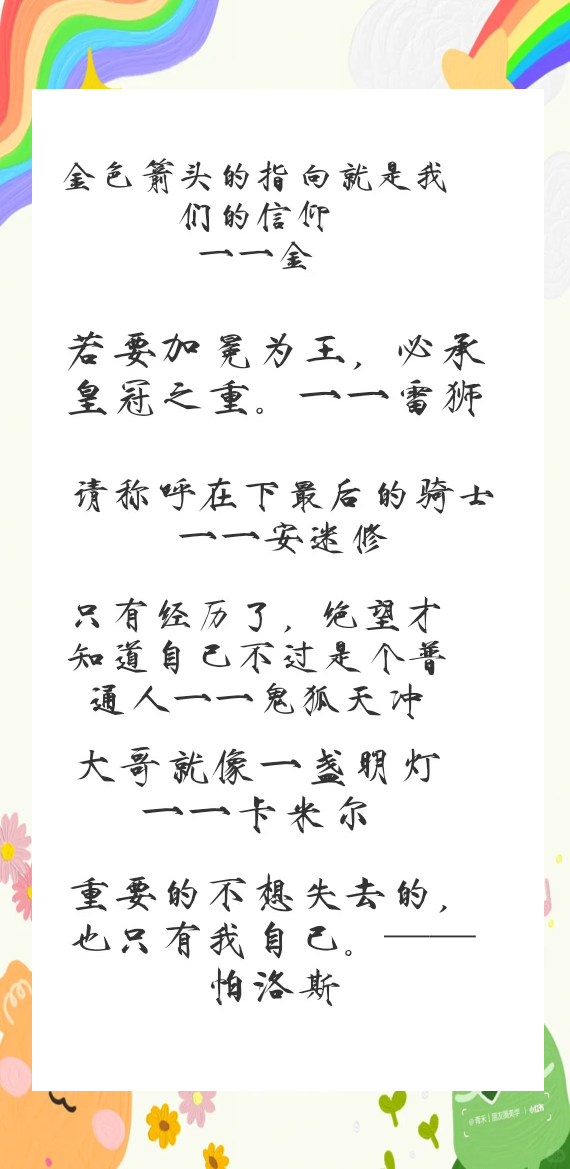 金色箭头的指向就是我
们的信仰
一一金
若要加冕为王，必承
皇冠之重。一一雷狮
请称呼在下最后的骑士
一一安迷修
只有经历了，绝望才
知道自己不过是个普
通人一一鬼狐天冲
大哥就像一盏明灯
一一卡米尔
重要的不想失去的，
也只有我自己。——
帕洛斯
@青禾｜朋友圈美学｜小红书